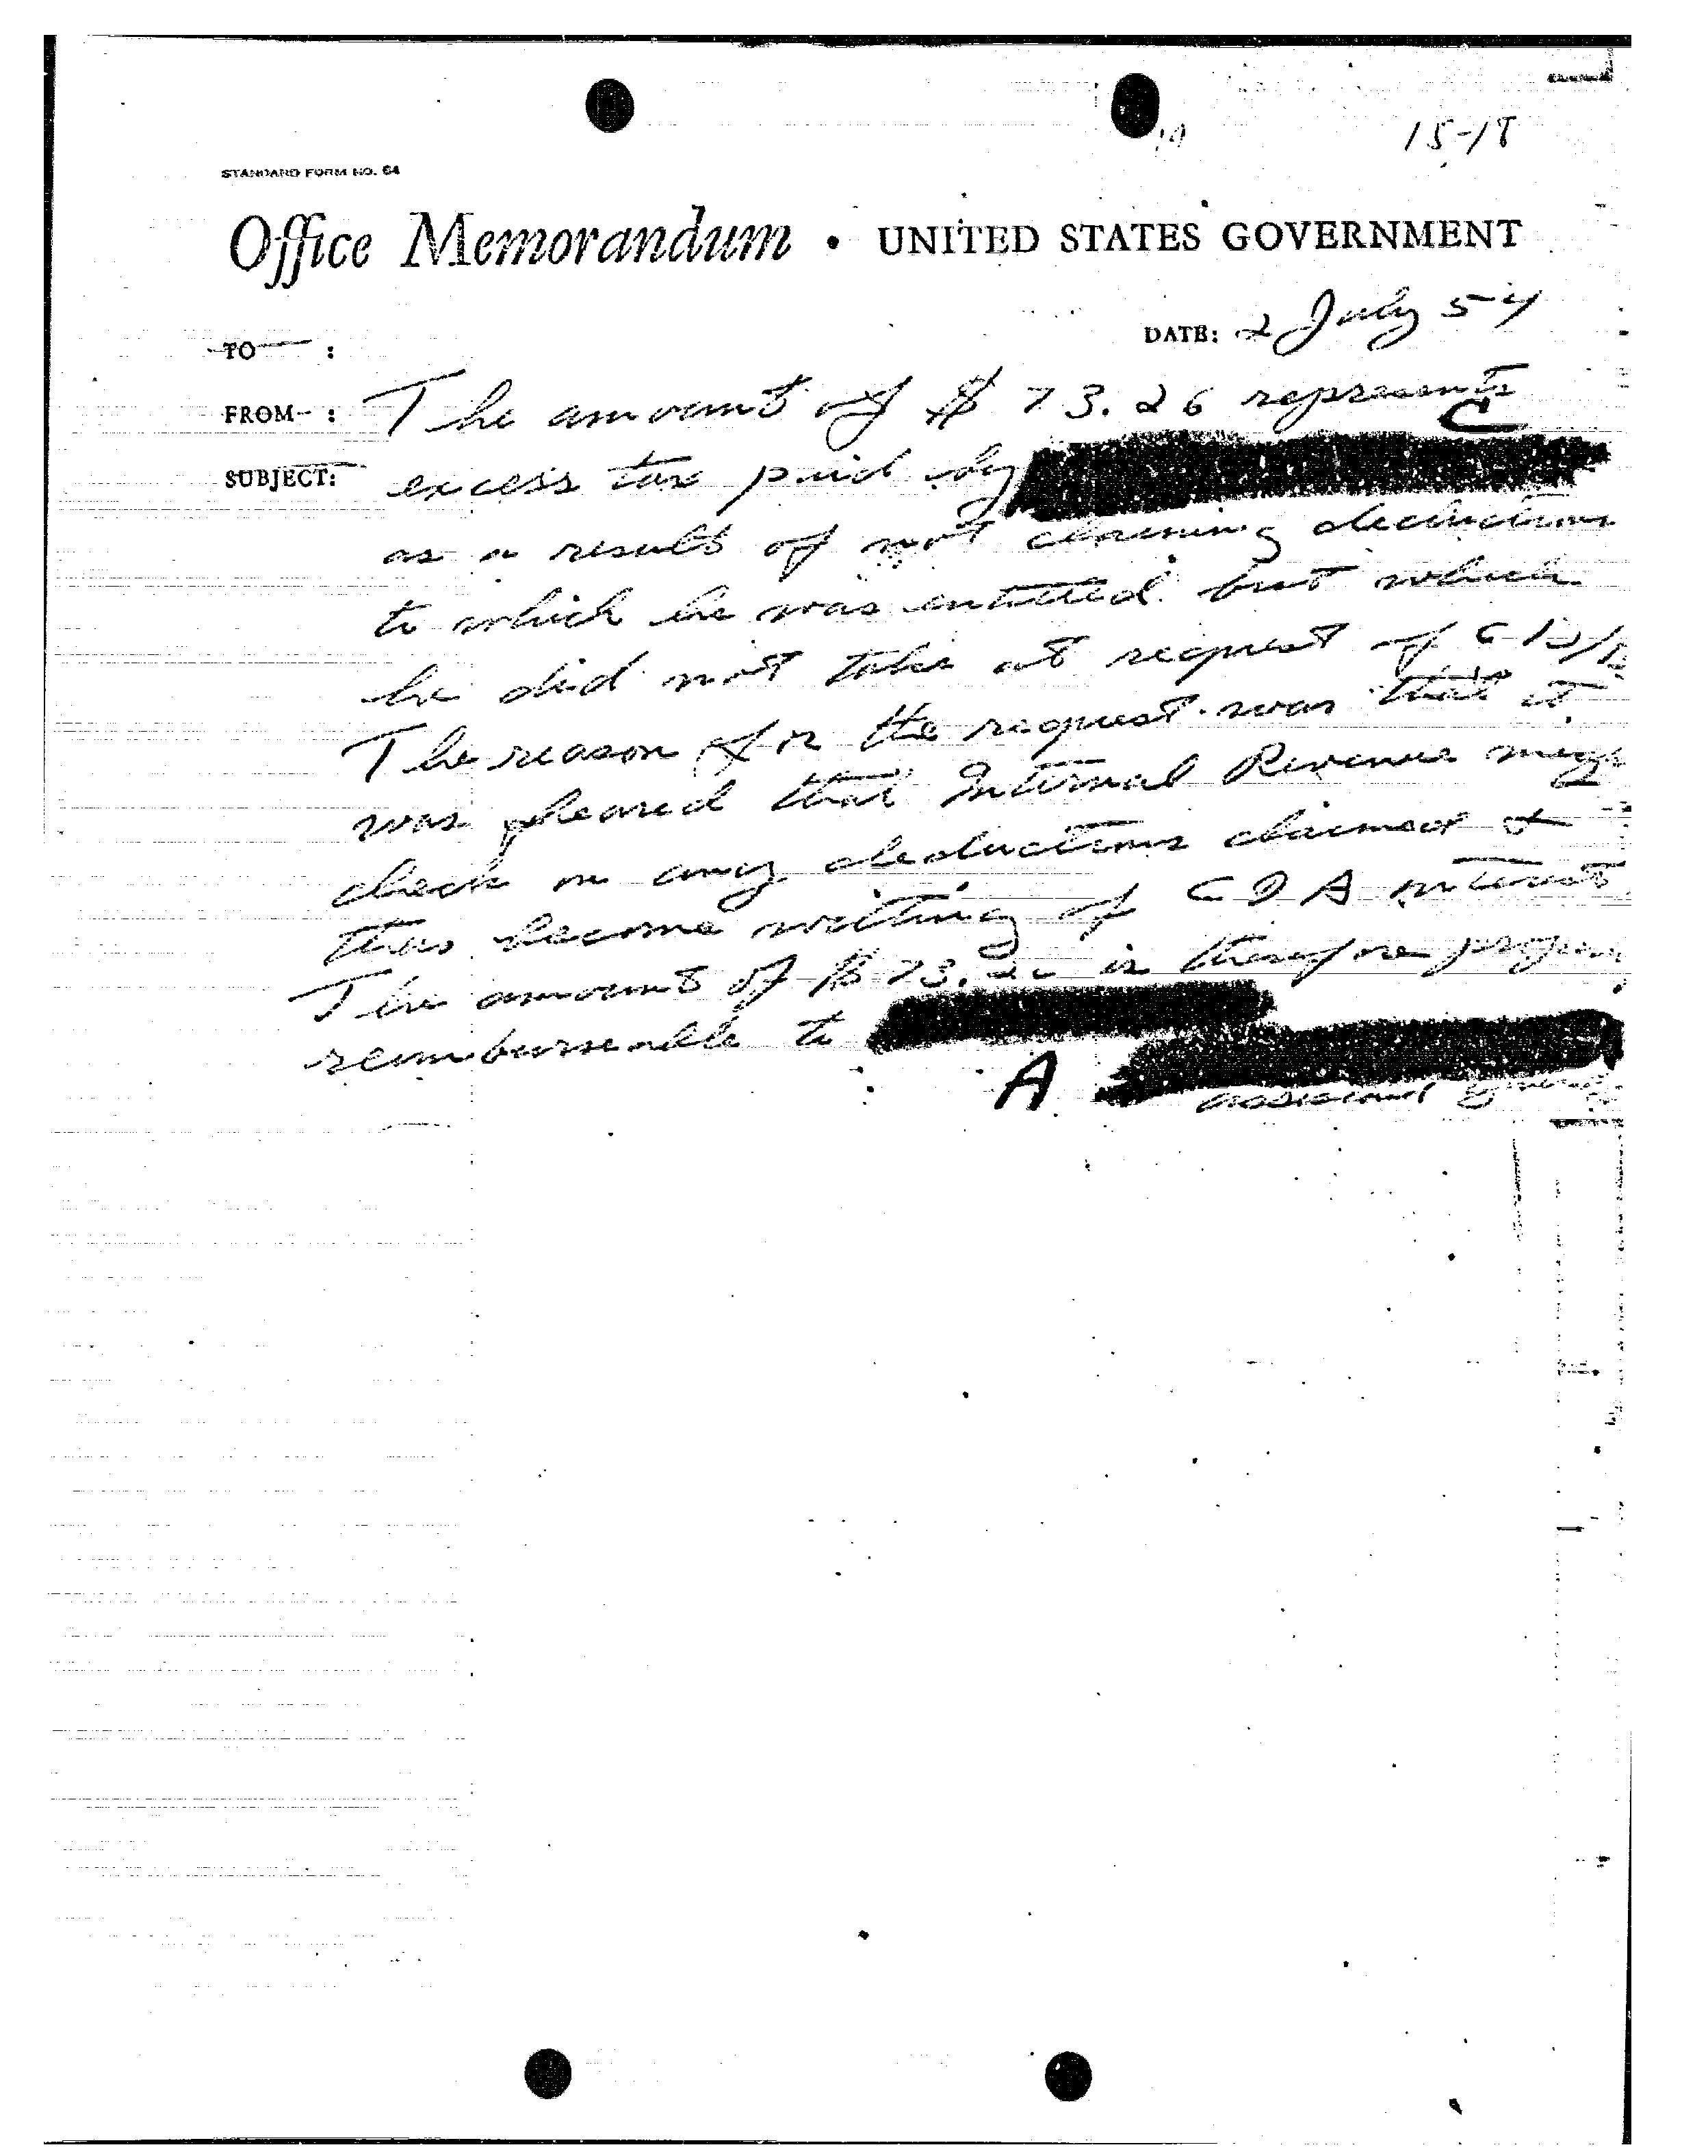 15-18
STANDARD FORM NO. 64
Office Memorandum • UNITED STATES GOVERNMENT
DATE: 2 July 54
TO :
FROM : The amount of $ 73.26 represents
C
SUBJECT: excess tax paid by
as a result of not claiming deductions
to which he was entitled but which
he did not take at request of
The reason for the request was that it
was feared that Internal Revenue
check on any deductions claimed &
thus become witting of interest
The amount of $ 73.26 is therefore
reimburseable to
A